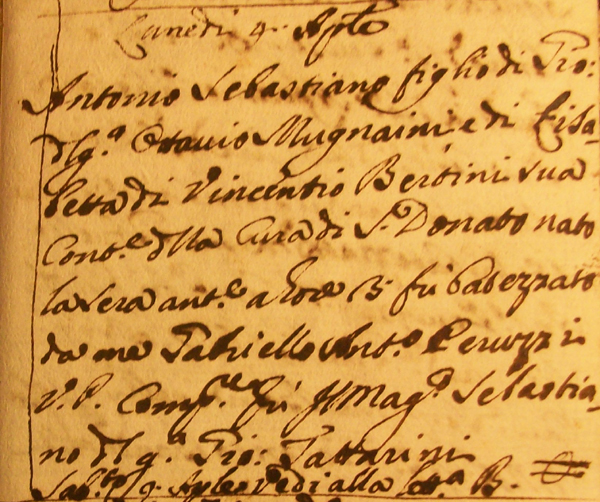 Lunedi 9. Aple
Antonio Sebastiano figlio di Gio:
dl q.m Ottavio Mugnaini e di Elisa_
betta di Vincentio Bertini sua
Cons.e dlla Cura di S. Donato nato
la sera ant.e a hore 3 fù batezzato
da me Gabriello Ant.o Peruzzi
V.C. Comp.e fù Il Mag.o Sebastia_
no dl q.m Gio:
9. Aple Vedi alla B.